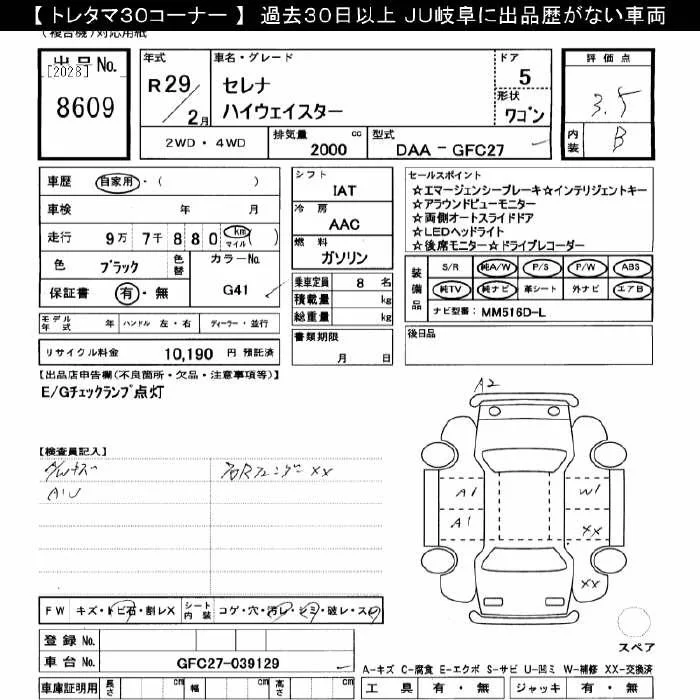 【 トレタマ30コーナー 】 過去30日以上 JU岐阜に出品歴がない車両
(複合機)対応用紙
出品No.
[2028]
8609
年式
R29/2月
車名・グレード
セレナ
ハイウェイスター
ドア
5
形状
ワゴン
2WD・4WD
排気量 cc
2000
型式
DAA－GFC27
評価点
3.5
内装
B
車歴 自家用・( )
車検 年 月
走行 9万 7千 8 8 0 km マイル ( )
色 ブラック
色替
カラーNo.
G41
保証書 有・無
モデル年式 年 ハンドル 左・右 ディーラー・並行
リサイクル料金 10,190 円 預託済
シフト
IAT
冷房
AAC
燃料
ガソリン
乗車定員 8 名
積載量 kg
総重量 kg
書類期限
月 日
セールスポイント
☆エマージェンシーブレーキ☆インテリジェントキー
☆アラウンドビューモニター
☆両側オートスライドドア
☆LEDヘッドライト
☆後席モニター☆ドライブレコーダー
装備品
S/R 純A/W P/S P/W ABS
純TV 純ナビ 革シート 外ナビ エアB
ナビ型番: MM516D-L
後日品
【出品店申告欄(不良箇所・欠品・注意事項等)】
E/Gチェックランプ点灯
【検査員記入】
AIU
XX
A2
A1
W1
A1
XX
XX
スペア
FW キズ・トビ石・割レX
シート内装 コゲ・穴・汚レ・シミ・破レ・スレ
登録 No.
車台 No. GFC27-039129
車庫証明用 長さ cm 幅 cm 高さ cm
A－キズ C－腐食 E－エクボ S－サビ U－凹ミ W－補修 XX－交換済
工具 有・無 ジャッキ 有・無